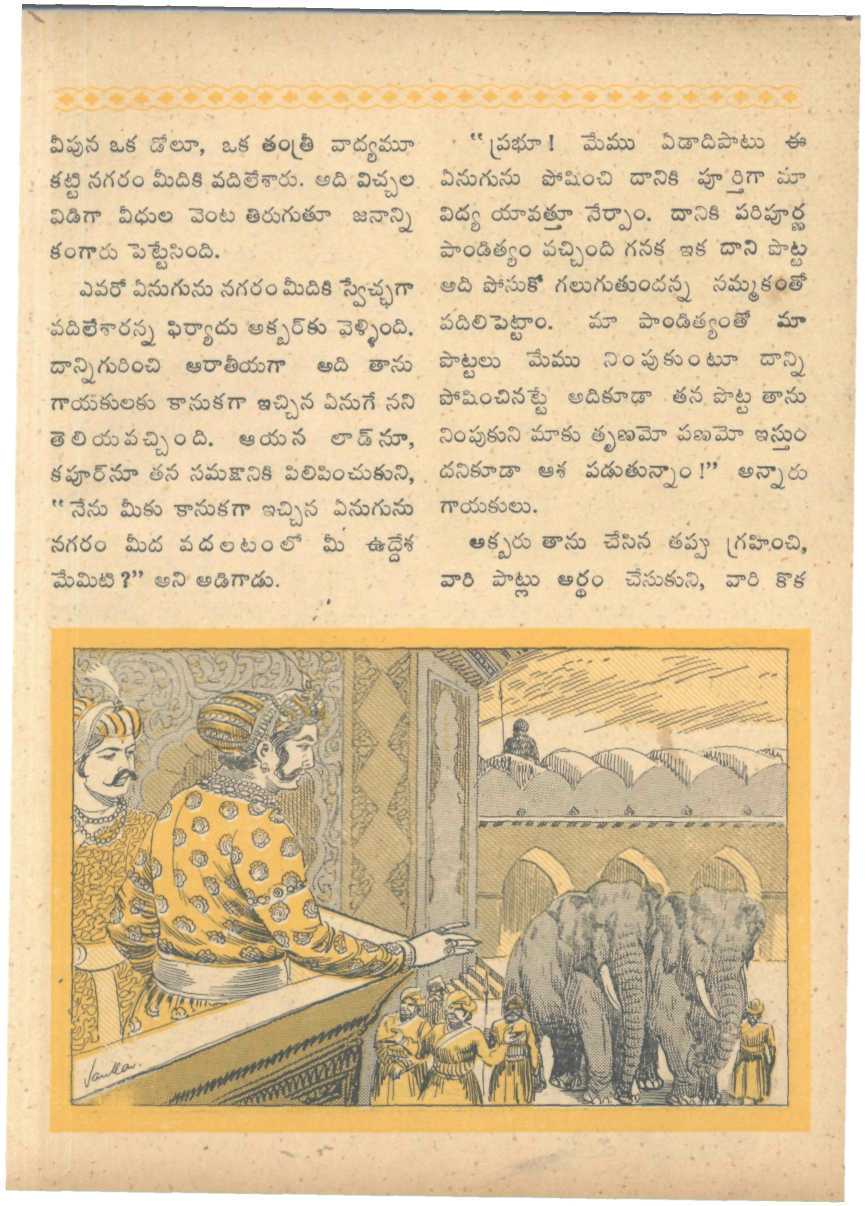 వీపున ఒక డోలూ, ఒక తంత్రీ వాద్యమూ
కట్టి నగరం మీదికి వదిలేశారు. అది విచ్చల
విడిగా వీధుల వెంట తిరుగుతూ జనాన్ని
కంగారు పెట్టేసింది.
ఎవరో ఏనుగును నగరంమీదికి స్వేచ్ఛగా
వదిలేశారన్న ఫిర్యాదు అక్బర్‌కు వెళ్ళింది.
దాన్నిగురించి ఆరాతీయగా అది తాను
గాయకులకు కానుకగా ఇచ్చిన ఏనుగే నని
తెలియవచ్చింది. ఆయన లాడ్‌నూ,
కపూర్‌నూ తన సమక్షానికి పిలిపించుకుని,
“నేను మీకు కానుకగా ఇచ్చిన ఏనుగును
నగరం మీద వదలటంలో మీ ఉద్దేశ
మేమిటి?” అని అడిగాడు.
“ప్రభూ! మేము ఏడాదిపాటు ఈ
ఏనుగును పోషించి దానికి పూర్తిగా మా
విద్య యావత్తూ నేర్పాం. దానికి పరిపూర్ణ
పాండిత్యం వచ్చింది గనక ఇక దాని పొట్ట
అది పోసుకో గలుగుతుందన్న నమ్మకంతో
వదిలిపెట్టాం. మా పాండిత్యంతో మా
పొట్టలు మేము నింపుకుంటూ దాన్ని
పోషించినట్టే అదికూడా తన పొట్ట తాను
నింపుకుని మాకు తృణమో పణమో ఇస్తుం
దనికూడా ఆశ పడుతున్నాం!” అన్నారు
గాయకులు.
అక్బరు తాను చేసిన తప్పు గ్రహించి,
వారి పాట్లు అర్థం చేసుకుని, వారి కొక
Sankar.